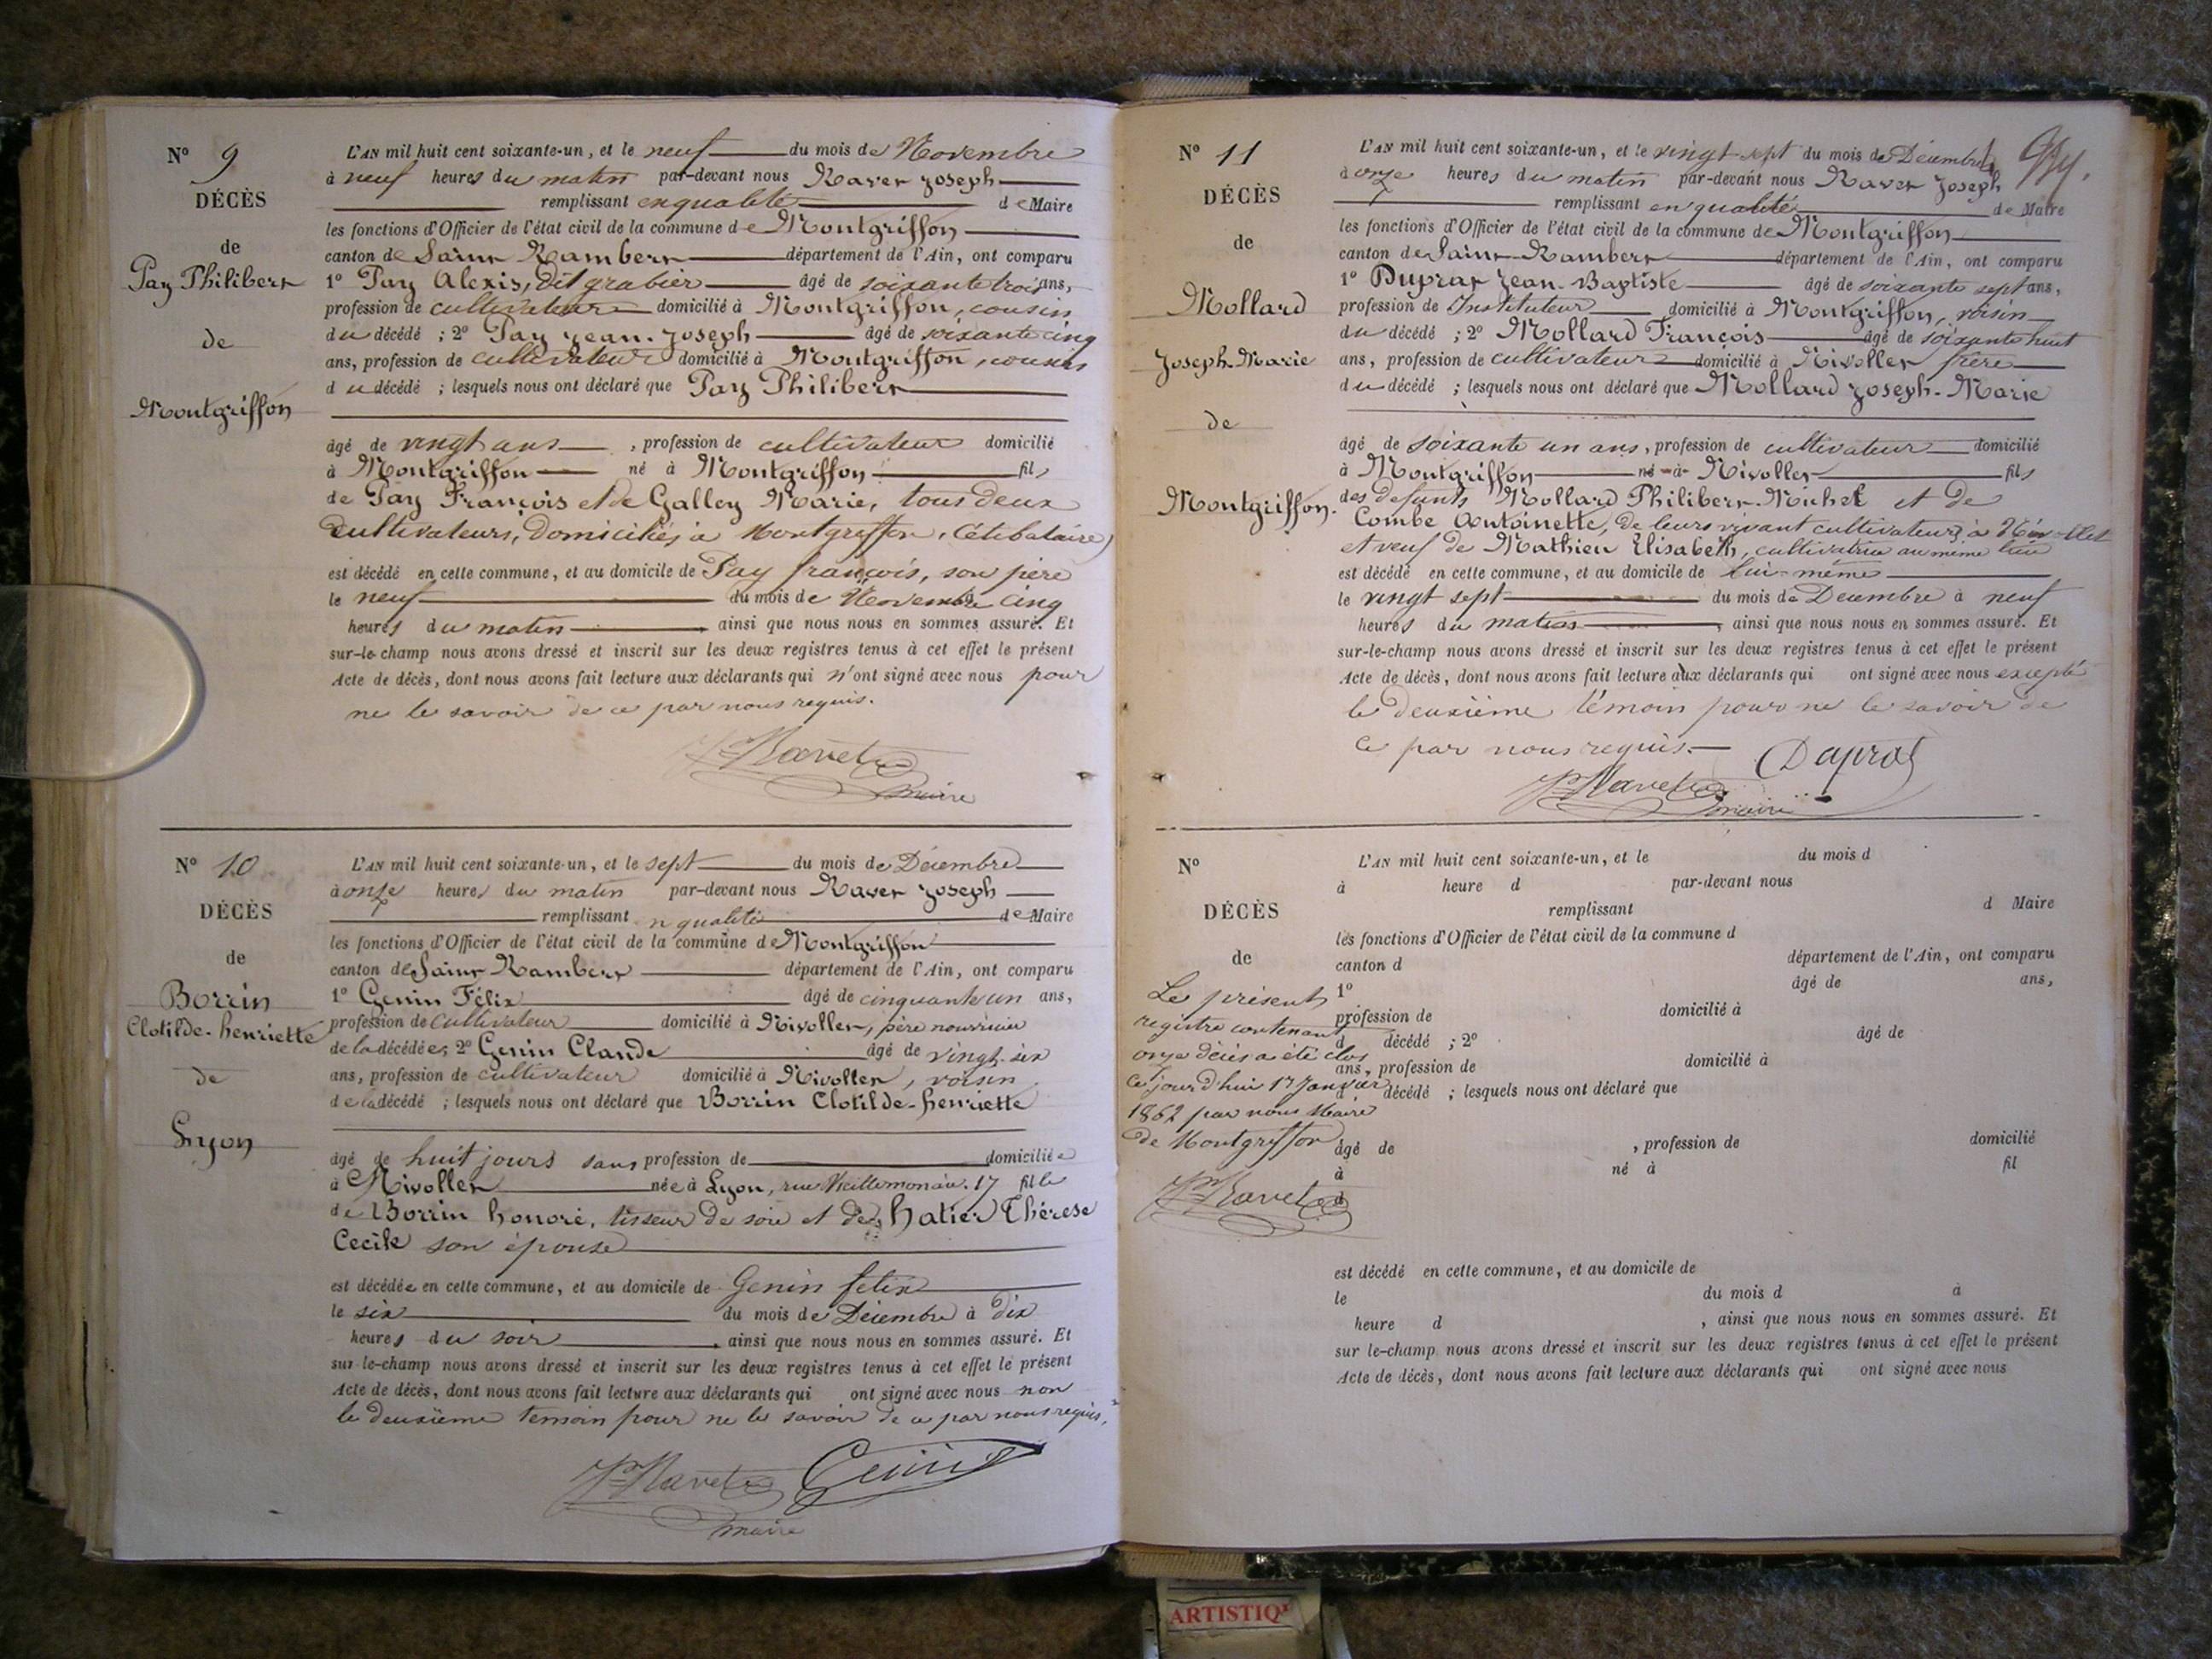 N° 9
DÉCÈS
de
Pay Philibert
de
Montgriffon
L'AN mil huit cent soixante-un, et le neuf du mois de Novembre
à neuf heures du matin par-devant nous Ravet Joseph
remplissant en qualité de Maire
les fonctions d'Officier de l'état civil de la commune de Montgriffon
canton de Saint Rambert département de l'Ain, ont comparu
1° Pay Alexis, dit grabier âgé de soixante trois ans,
profession de cultivateur domicilié à Montgriffon, cousin
du décédé ; 2° Pay jean-Joseph âgé de soixante cinq
ans, profession de cultivateur domicilié à Montgriffon, cousin
du décédé ; lesquels nous ont déclaré que Pay Philibert
âgé de vingt ans , profession de cultivateur domicilié
à Montgriffon né à Montgriffon fils
de Pay François et de Galley Marie, tous deux
cultivateurs, domiciliés à Montgriffon, Célibataire
est décédé en cette commune, et au domicile de Pay françois, son père
le neuf du mois de Novembre à cinq
heures du matin , ainsi que nous nous en sommes assuré. Et
sur-le-champ nous avons dressé et inscrit sur les deux registres tenus à cet effet le présent
Acte de décès, dont nous avons fait lecture aux déclarants qui n'ont signé avec nous pour
ne le savoir de ce par nous requis.
Jh Ravet
maire
N° 10
DÉCÈS
de
Borrin
Clotilde-henriette
de
Lyon
L'AN mil huit cent soixante-un, et le sept du mois de Décembre
à onze heures du matin par-devant nous Ravet Joseph
remplissant n qualité de Maire
les fonctions d'Officier de l'état civil de la commune de Montgriffon
canton de Saint Rambert département de l'Ain, ont comparu
1° Genin Félix âgé de cinquante un ans,
profession de cultivateur domicilié à Nivollet, père nourricier
de la décédée; 2° Genin Claude âgé de vingt-six
ans, profession de cultivateur domicilié à Nivollet, voisin
de la décédé ; lesquels nous ont déclaré que Borrin Clotilde-henriette
âgé de huit jours sans profession de domiciliée
à Nivollet née à Lyon, rue Vieille monaie. 17 fille
de Borrin honoré, tisseur de soie et de hatier Thérese
Cecile son épouse
est décédée en cette commune, et au domicile de Genin felix
le six du mois de Décembre à dix
heures du soir , ainsi que nous nous en sommes assuré. Et
sur-le-champ nous avons dressé et inscrit sur les deux registres tenus à cet effet le présent
Acte de décès, dont nous avons fait lecture aux déclarants qui ont signé avec nous non
le deuxième temoin pour ne le savoir de ce par nous requis.
Jh Ravet Genin
maire
N° 11
DÉCÈS
de
Mollard
Joseph-Marie
de
Montgriffon.
L'AN mil huit cent soixante-un, et le vingt-sept du mois de Décembre
à onze heures du matin par-devant nous Ravet Joseph
remplissant en qualité de Maire
les fonctions d'Officier de l'état civil de la commune de Montgriffon
canton de Saint-Rambert département de l'Ain, ont comparu
1° Duprat Jean-Baptiste âgé de soixante sept ans,
profession de Instituteur domicilié à Montgriffon, voisin
du décédé ; 2° Mollard François âgé de soixante huit
ans, profession de cultivateur domicilié à Nivollet frère
du décédé ; lesquels nous ont déclaré que Mollard Joseph-Marie
âgé de soixante un ans, profession de cultivateur domicilié
à Montgriffon né à Nivollet fils
des defunts Mollard Philibert-Michel et de
Combe Antoinette, de leurs vivant cultivateurs à Nivollet
et veuf de Mathieu Elisabeth, cultivatrice au même lieu
est décédé en cette commune, et au domicile de lui-même
le vingt sept du mois de Décembre à neuf
heures du matin , ainsi que nous nous en sommes assuré. Et
sur-le-champ nous avons dressé et inscrit sur les deux registres tenus à cet effet le présent
Acte de décès, dont nous avons fait lecture aux déclarants qui ont signé avec nous excepté
le deuxième témoin pour ne le savoir de
ce par nous requis. Duprat
Jh Ravet
maire
N°
DÉCÈS
de
Le présent
registre contenant
onze décès a été clos
ce jourd'hui 17 Janvier
1862 par nous Maire
de Montgriffon
Jh Ravet
L'AN mil huit cent soixante-un, et le du mois d
à heure d par-devant nous
remplissant d Maire
les fonctions d'Officier de l'état civil de la commune d
canton d département de l'Ain, ont comparu
1° âgé de ans,
profession de domicilié à
d décédé ; 2° âgé de
ans, profession de domicilié à
d décédé ; lesquels nous ont déclaré que
âgé de , profession de domicilié
à né à fil
d
est décédé en cette commune, et au domicile de
le du mois d à
heure d , ainsi que nous nous en sommes assuré. Et
sur le-champ nous avons dressé et inscrit sur les deux registres tenus à cet effet le présent
Acte de décès, dont nous avons fait lecture aux déclarants qui ont signé avec nous
ARTISTIQ